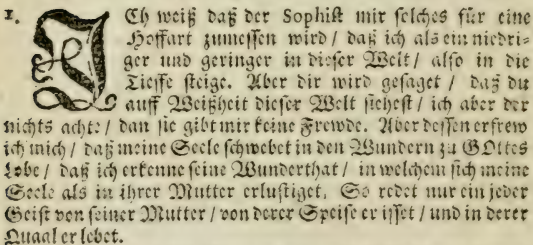 1. ICh weiß daß der Sophist mir solches für eine
Hoffart zumessen wird / daß ich als ein niedri-
ger und geringer in dieser Welt / also in die
Tieffe steige. Aber dir wird gesaget / daß du
auff Weißheit dieser Welt siehest / ich aber der
nichts achte / dan sie gibt mir keine Frewde. Aber dessen erfrew
ich mich / daß meine Seele schwebet in den Wundern zu GOttes
Lobe / daß ich erkenne seine Wunderthat / in welchem sich meine
Seele als in ihrer Mutter erlustiget. So redet nur ein jeder
Geist von seiner Mutter / von derer Speise er isset / und in derer
Quaal er lebet.